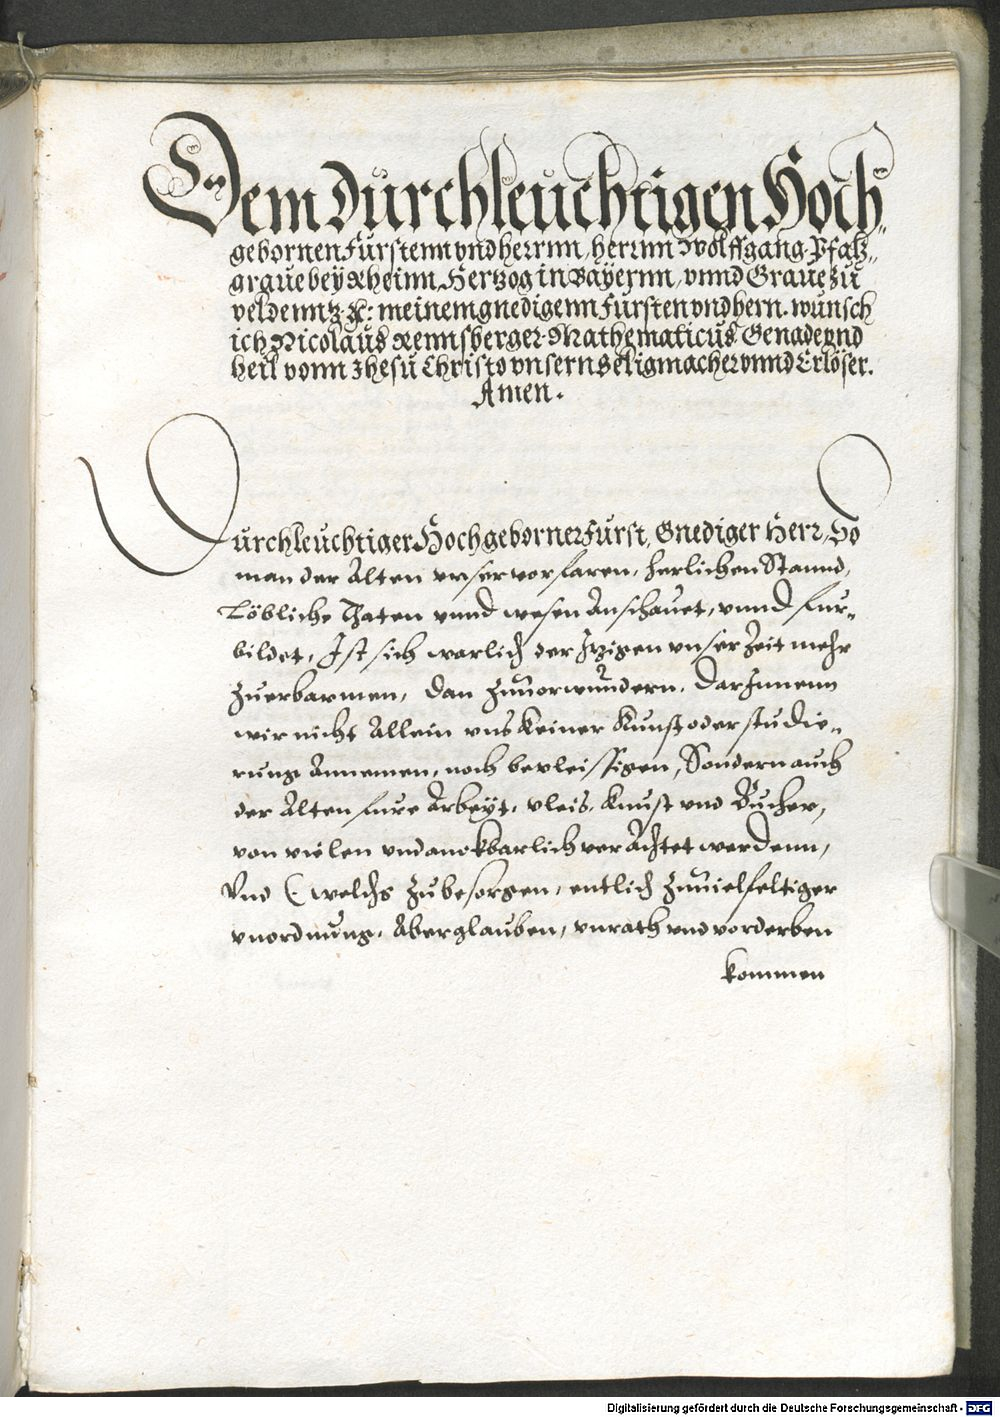 Dem Durchleuchtigen Hoch„
gebornen Furstenn vnd herrnn, herrnn Wolffgang Pfaltz„
graue bey Rheinn, Hertzog in Bayernn, vnnd Graue zu
veldenntz &c: meinem gnedigenn Fursten vnd hern. wunsch
ich Nicolaus Rennsberger Mathematicus Genade vnd
heil vonn Jhesu Christo vnsern Seligmacher vnnd Erlöser.
Amen.
Durchleuchtiger Hochgeborner Furst, Gnediger Herr, So
man der Alten vnser vorfaren, herlichen Stannd,
Löbliche Thaten vnnd wesen Anschauet, vnnd fur„
bildet, Ist sich warlich der Jtzigen vnser Zeit mehr
zuerbarmen, dan zuuorwundern, DarJnnenn
wir nicht Allein vns keiner Kunst oder studie„
rung Annemen, noch bevleissigen, Sondern auch
der Alten sure Arbeyt, vleis, Kunst vnd Bucher,
von vielen vndanckbarlich verAchtet werdenn,
Vnd (welchs zubesorgen, entlich zuuielfeltiger
vnordnung, Aberglauben, vnrath vnd vorderben
kommen
Digitalisierung gefördert durch die Deutsche Forschungsgemeinschaft - DFG